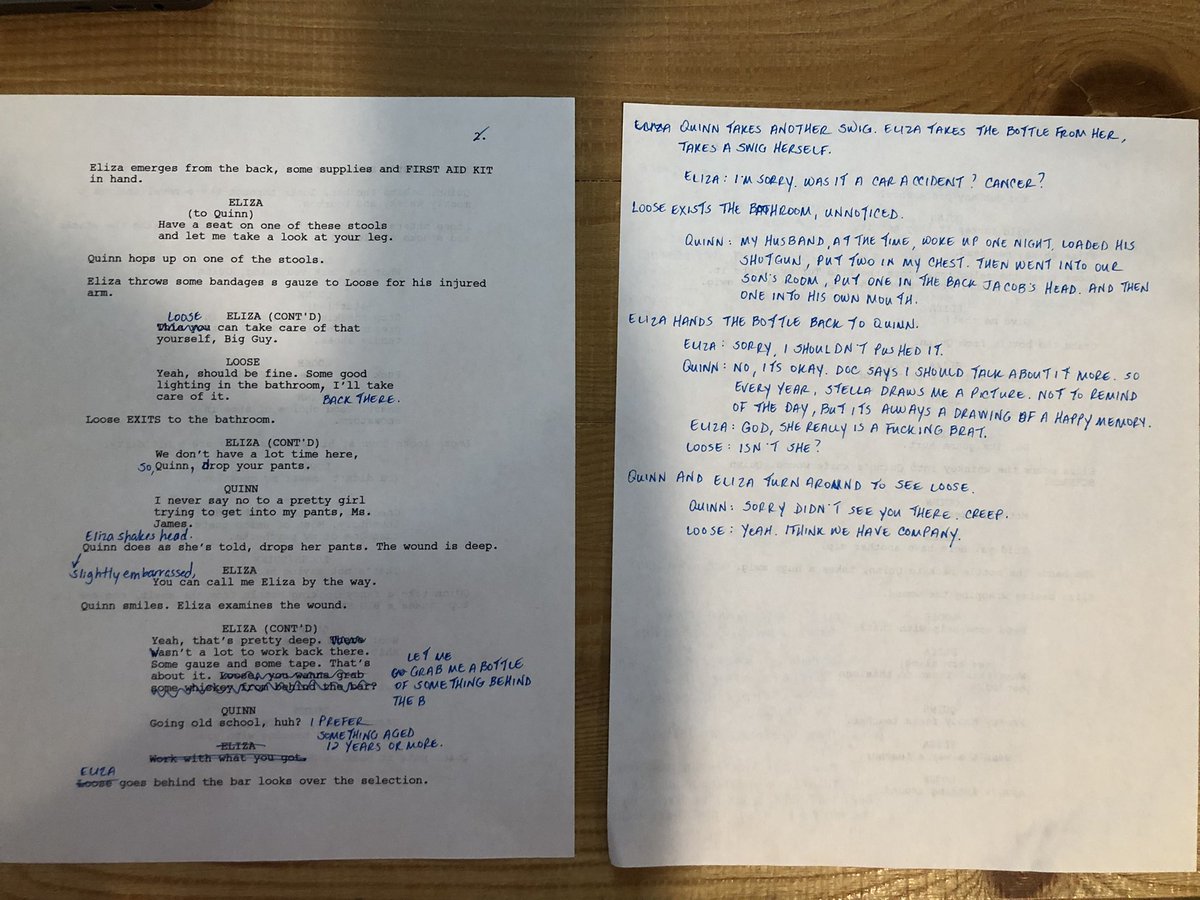 2.
Eliza emerges from the back, some supplies and FIRST AID KIT
in hand.
ELIZA
(to Quinn)
Have a seat on one of these stools
and let me take a look at your leg.
Quinn hops up on one of the stools.
Eliza throws some bandages s gauze to Loose for his injured
arm.
LOOSE ELIZA (CONT'D)
This you can take care of that
yourself, Big Guy.
LOOSE
Yeah, should be fine. Some good
lighting in the bathroom, I'll take
care of it. BACK THERE.
Loose EXITS to the bathroom.
ELIZA (CONT'D)
We don't have a lot time here,
So, Quinn, drop your pants.
QUINN
I never say no to a pretty girl
trying to get into my pants, Ms.
James.
Eliza shakes head.
Quinn does as she's told, drops her pants. The wound is deep.
ELIZA
slightly embarrassed,
You can call me Eliza by the way.
Quinn smiles. Eliza examines the wound.
ELIZA (CONT'D)
Yeah, that's pretty deep. There
Wasn't a lot to work back there.
Some gauze and some tape. That's
about it. Loose, you wanna grab
some whiskey from behind the bar?
LET ME
GO GRAB ME A BOTTLE
OF SOMETHING BEHIND
THE B
QUINN
Going old school, huh? I PREFER
SOMETHING AGED
12 YEARS OR MORE.
ELIZA
Work with what you got.
ELIZA
Loose goes behind the bar looks over the selection.
ELIZA QUINN TAKES ANOTHER SWIG. ELIZA TAKES THE BOTTLE FROM HER,
TAKES A SWIG HERSELF.
ELIZA: I'M SORRY. WAS IT A CAR ACCIDENT? CANCER?
LOOSE EXISTS THE BATHROOM, UNNOTICED.
QUINN: MY HUSBAND, AT THE TIME, WOKE UP ONE NIGHT, LOADED HIS
SHOTGUN, PUT TWO IN MY CHEST. THEN WENT INTO OUR
SON'S ROOM, PUT ONE IN THE BACK JACOB'S HEAD. AND THEN
ONE INTO HIS OWN MOUTH.
ELIZA HANDS THE BOTTLE BACK TO QUINN.
ELIZA: SORRY, I SHOULDN'T PUSHED IT.
QUINN: NO, IT'S OKAY. DOC SAYS I SHOULD TALK ABOUT IT MORE. SO
EVERY YEAR, STELLA DRAWS ME A PICTURE. NOT TO REMIND
OF THE DAY, BUT ITS ALWAYS A DRAWING OF A HAPPY MEMORY.
ELIZA: GOD, SHE REALLY IS A FUCKING BRAT.
LOOSE: ISN'T SHE?
QUINN AND ELIZA TURN AROUND TO SEE LOOSE.
QUINN: SORRY DIDN'T SEE YOU THERE. CREEP.
LOOSE: YEAH. I THINK WE HAVE COMPANY.